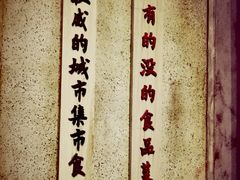 有的没的食品
的城市集市食